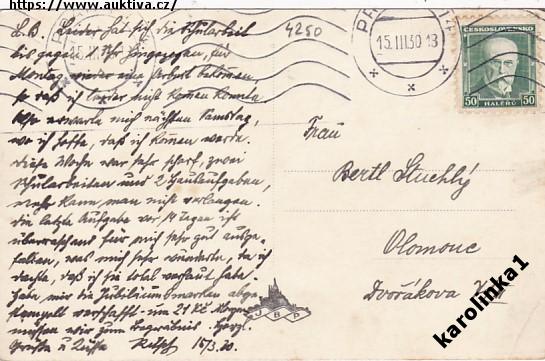 https://www.auktiva.cz/
L.B. Leider hat sich die Schularbeit
bis gegen Uhr hingezogen, für
Montag wieder eine Arbeit bekommen,
so daß ich leider nicht kommen konnte.
erwarte mich nächsten Samstag,
wo ich hoffe, daß ich kommen werde.
Diese Woche war sehr scharf, zwei
Schularbeiten und 2 Hausaufgaben,
mehr kann man nicht verlangen.
Die letzte Aufgabe vor 14 Tagen ist
überraschend für mich sehr gut ausge-
fallen, was mich sehr wunderte, da ich
dachte, daß ich sie total verhaut habe.
Habe mir die Jubiläumsmarken abge-
stempelt verschafft - um 21 Kč. Morgen
müssen wir zum Begräbnis. Herzl.
Grüße u Küsse 15/3.30.
4250
15.III.30
ČESKOSLOVENSKO
50 HALÉŘŮ 50
Frau
Bertl Stuchlý
Olomouc
Dvořákova
JBP
karolinka1